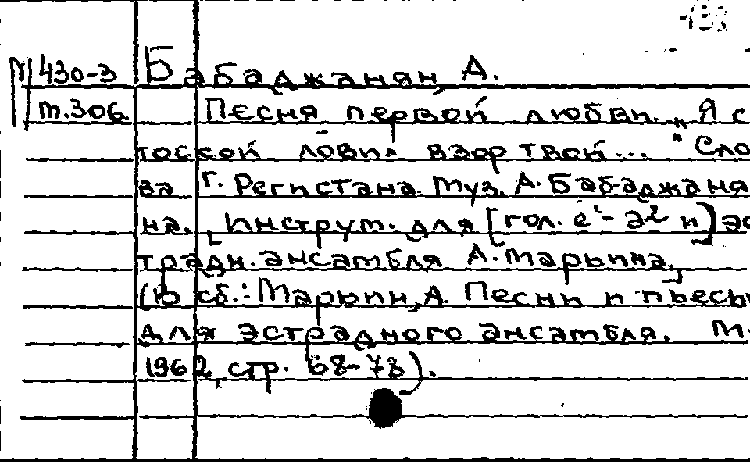 М 430-3 Бабаджанян, А.
т.306 Песня первой любви. „Я с
тоской ловил взор твой... " Сло
ва Г. Регистана Муз. А. Бабаджаня
на. [Инструм. для [гол. e¹ - a² и] эс
традн. ансамбля А. Марьина.]
(В сб.: Марьин, А. Песни и пьесы
для эстрадного ансамбля. М.
1962, стр. 68-78).